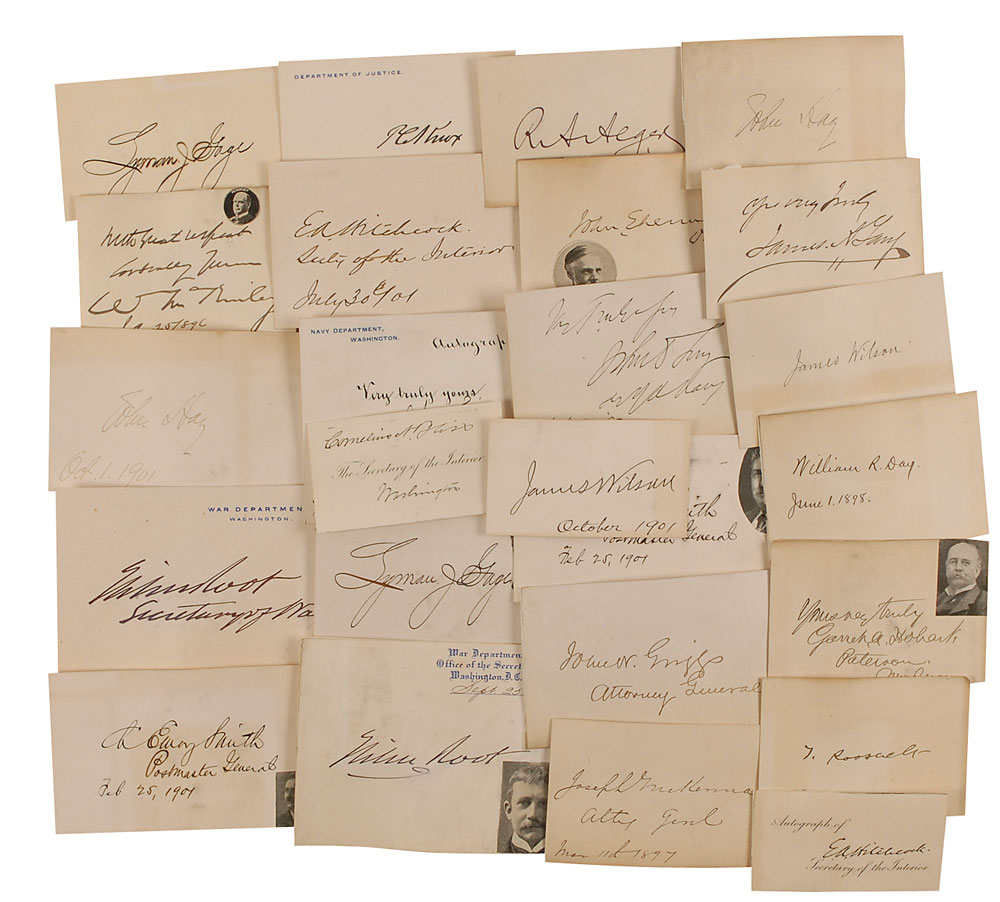 Lyman J. Gage
DEPARTMENT OF JUSTICE.
P C Knox
R. A. Alger
John Hay
With great respect
Cordially Yours
Wm McKinley
25/896
E A Hitchcock.
Secty of the Interior
July 30th/01
John Sherm
Yours very truly
James A. Gary
NAVY DEPARTMENT,
WASHINGTON.
Autograp
Very truly yours,
Very Truly yrs
John D Long
James Wilson
John Hay
Oct. 1. 1901
Cornelius N. Bliss
The Secretary of the Interior
Washington
James Wilson
October 1901
William R. Day.
June 1. 1898.
WAR DEPARTMEN
WASHINGTON.
Elihu Root
Secretary of Wa
Lyman J. Gage
ith
Postmaster General
Feb 25, 1901
Yours very truly
Garret A. Hobart
Paterson,
War Departmen
Office of the Secret
Washington, D.C.
Sept 25
Elihu Root
John W. Griggs
Attorney General
Ch Emory Smith
Postmaster General
Feb 25, 1901
T. Roosevelt
Joseph McKenna
Atty Genl
Mar 11th 1897
Autograph of
E A Hitchcock.
Secretary of the Interior